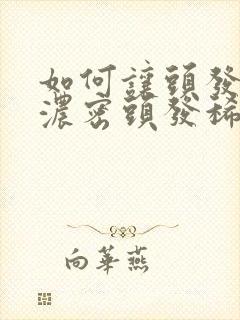 如何讓頭發
濃密頭發稀
向華燕